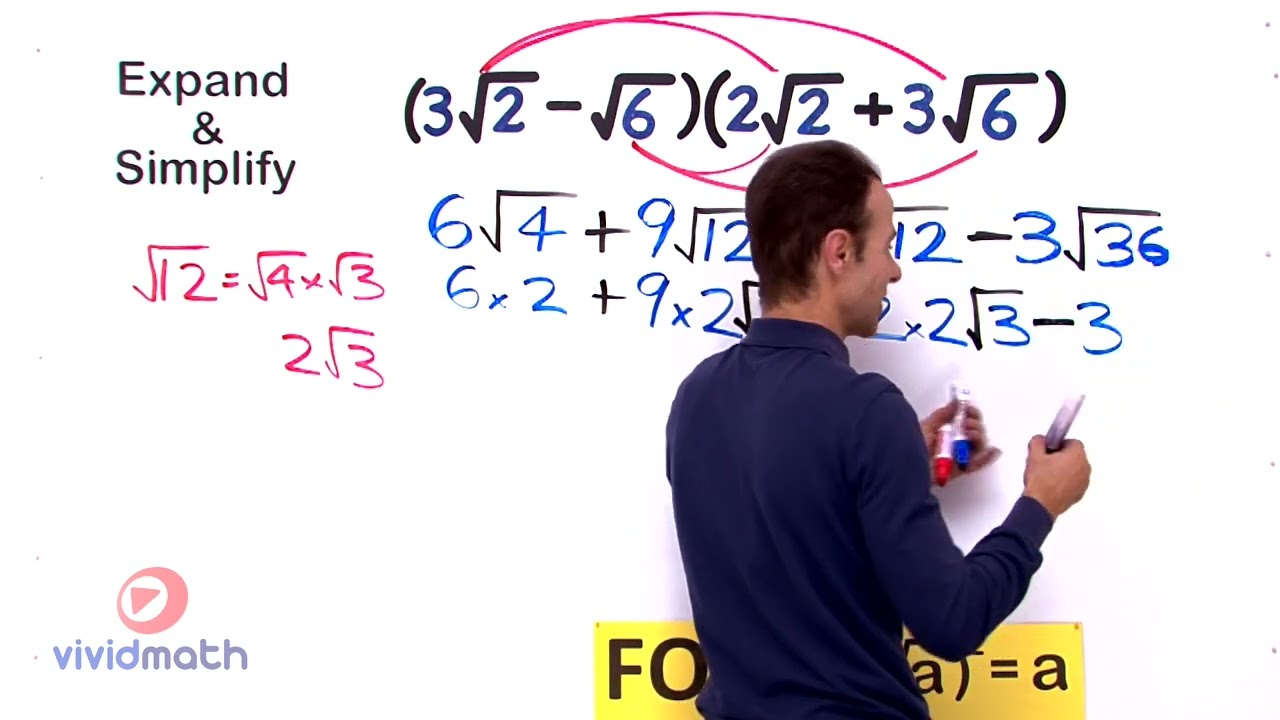 Expand
&
Simplify
(3√2 − √6)(2√2 + 3√6)
6√4 + 9√12 √12 − 3√36
6 × 2 + 9 × 2√ × 2√3 − 3
√12 = √4 × √3
2√3
vividmath
FO a) = a